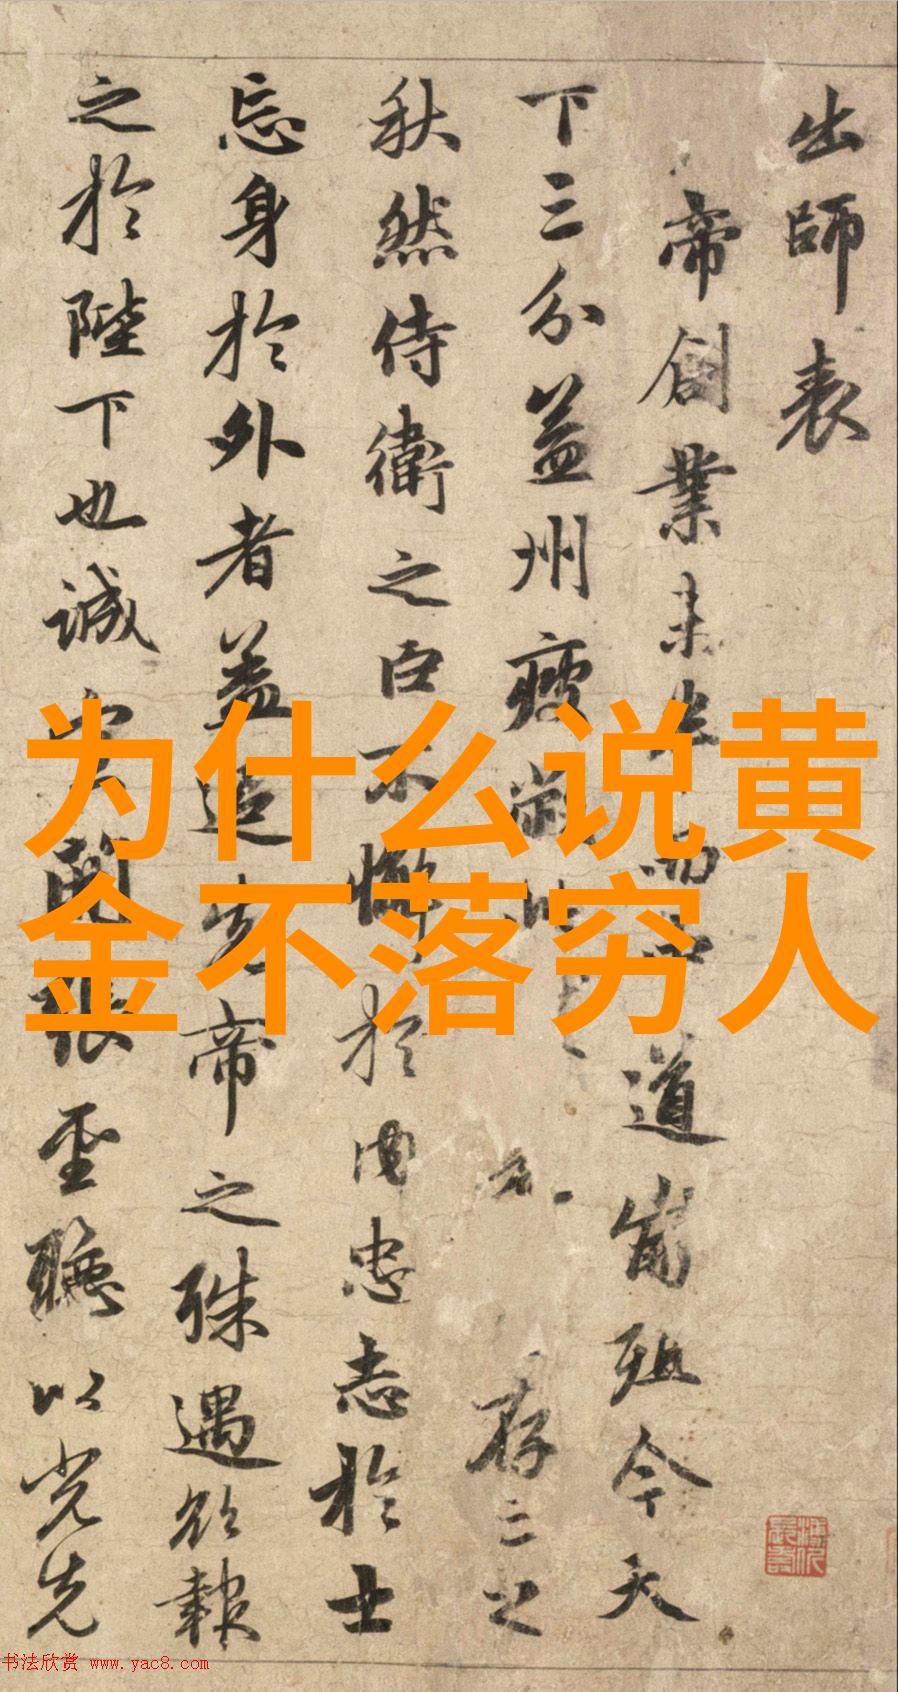 出師表
帝創業未半而中道崩殂今天
下三分益州疲敝此存亡之
秋然侍衛之臣不懈於内忠志於士
忘身於外者蓋追先帝之殊遇欲報
之於陛下也誠宜開張聖聽以光先
为什么说黄
金不落穷人
书法欣赏 www.yac8.com